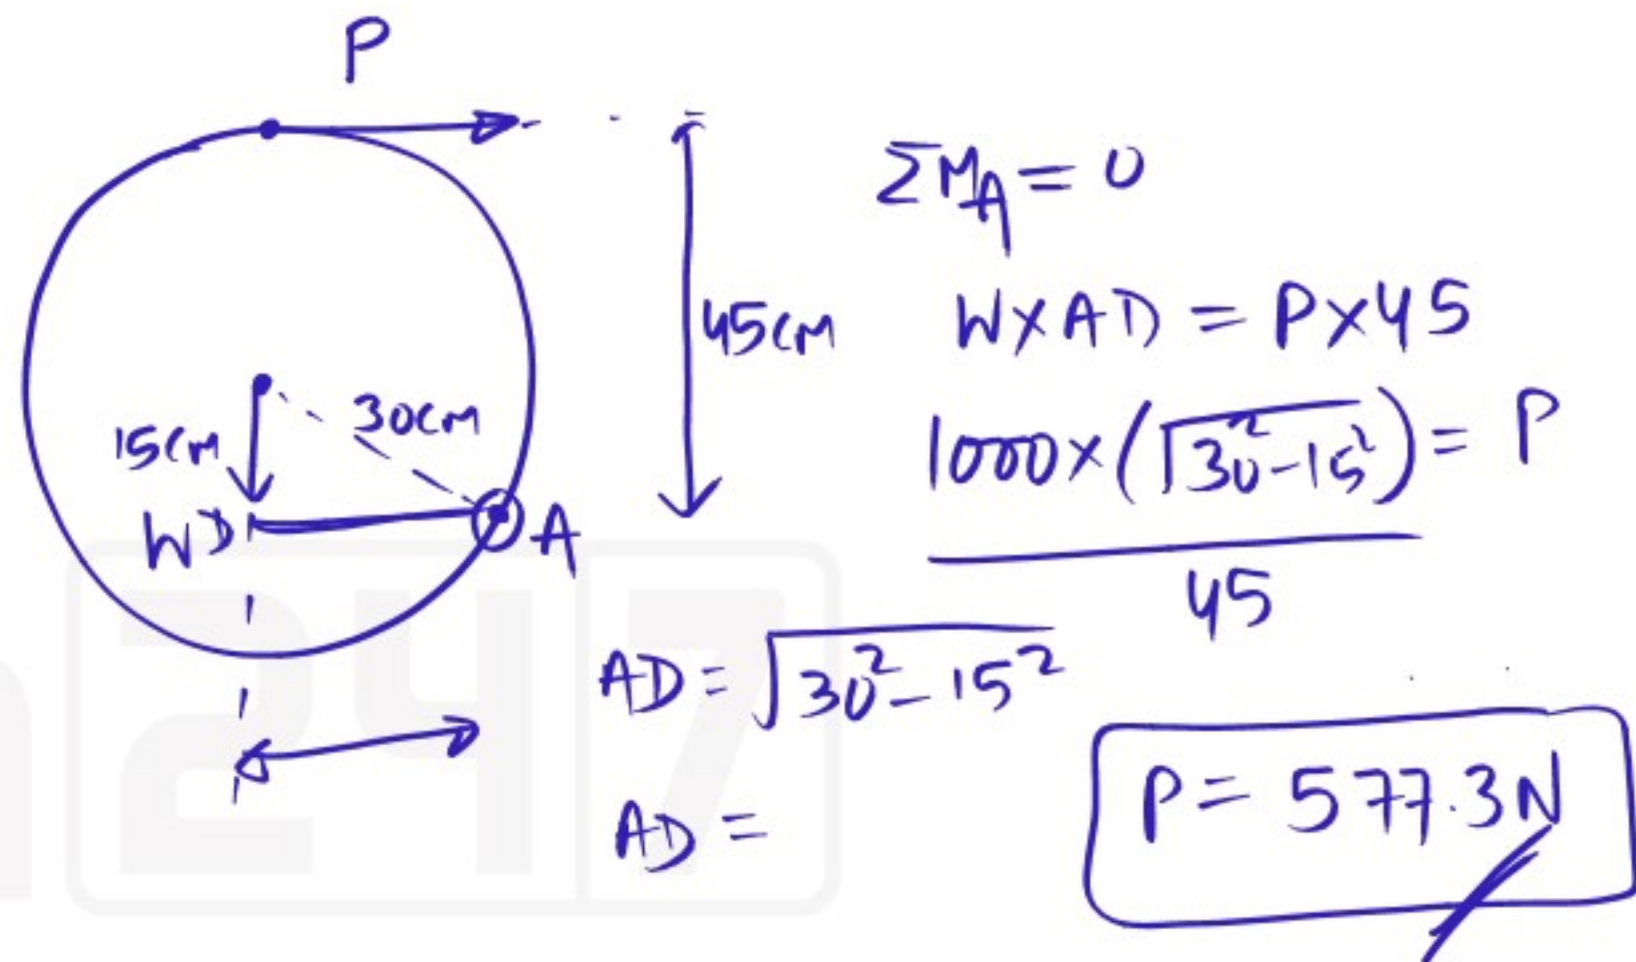 P
45cm
15cm
30cm
W D
A
ΣM_A = 0
W×AD = P×45
1000×(√30²-15²) = P
45
AD = √30²-15²
AD =
P = 577.3N
247